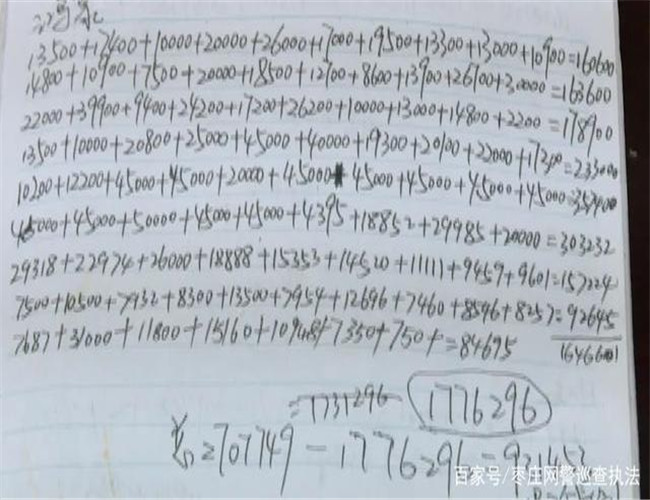 13500+17400+10000+20000+26000+17000+19500+13300+13000+10900=160600
14800+10900+7500+20000+18500+12700+8600+13900+26700+30000=163600
22000+39900+9400+24200+17200+26200+10000+13000+14800+2200=178900
13500+10000+20800+25000+45000+40000+19300+20100+22000+17200=233000
10200+12200+45000+45000+20000+45000+45000+45000+45000+45000=357400
45000+45000+50000+45000+45000+4395+18852+29985+20000=303232
29318+22974+26000+18888+15353+14520+11111+9459+9601=157224
7500+10500+7932+8300+13500+7954+12696+7460+8596+8257=92645
7687+31000+11800+15160+10948+7350+750+=84695
1646601
=1731296 1776296
707749-1776296=
百家号/枣庄网警巡查执法